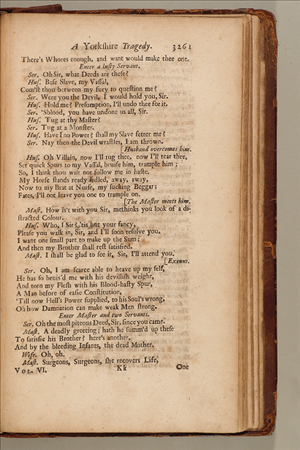 A Yorkshire Tragedy. 3261
There's Whores enough, and want would make thee one.
Enter a lusty Servant.
Ser. Oh Sir, what Deeds are these?
Hus. Base Slave, my Vassal,
Com'st thou between my fury to question me?
Ser. Were you the Devil, I would hold you, Sir.
Hus. Hold me? Presumption, I'll undo thee for it.
Ser. 'Sblood, you have undone us all, Sir.
Hus. Tug at thy Master!
Ser. Tug at a Monster.
Hus. Have I no Power? shall my Slave fetter me?
Ser. Nay then the Devil wrastles, I am thrown.
[Husband overcomes him.
Hus. Oh Villain, now I'll tug thee, now I'll tear thee,
Set quick Spurs to my Vassal, bruise him, trample him;
So, I think thou wilt not follow me in haste.
My Horse stands ready sadled, away, away,
Now to my Brat at Nurse, my sucking Beggar:
Fates, I'll not leave you one to trample on.
[The Master meets him.
Mast. How is't with you Sir, methinks you look of a di-
stracted Colour.
Hus. Who, I Sir? 'tis but your fancy,
Please you walk in, Sir, and I'll soon resolve you,
I want one small part to make up the Sum;
And then my Brother shall rest satisfied.
Mast. I shall be glad to see it, Sir, I'll attend you.
[Exeunt.
Ser. Oh, I am scarce able to heave up my self,
He has so bruis'd me with his devillish weight,
And torn my Flesh with his Blood-hasty Spur,
A Man before of easie Constitution,
'Till now Hell's Power supplied, to his Soul's wrong,
Oh how Damnation can make weak Men strong.
Enter Master and two Servants.
Ser. Oh the most piteous Deed, Sir, since you came.
Mast. A deadly greeting! hath he summ'd up these
To satisfie his Brother? here's another,
And by the bleeding Infants, the dead Mother.
Wife. Oh, oh.
Mast. Surgeons, Surgeons, she recovers Life,
Vol. VI. Kk One